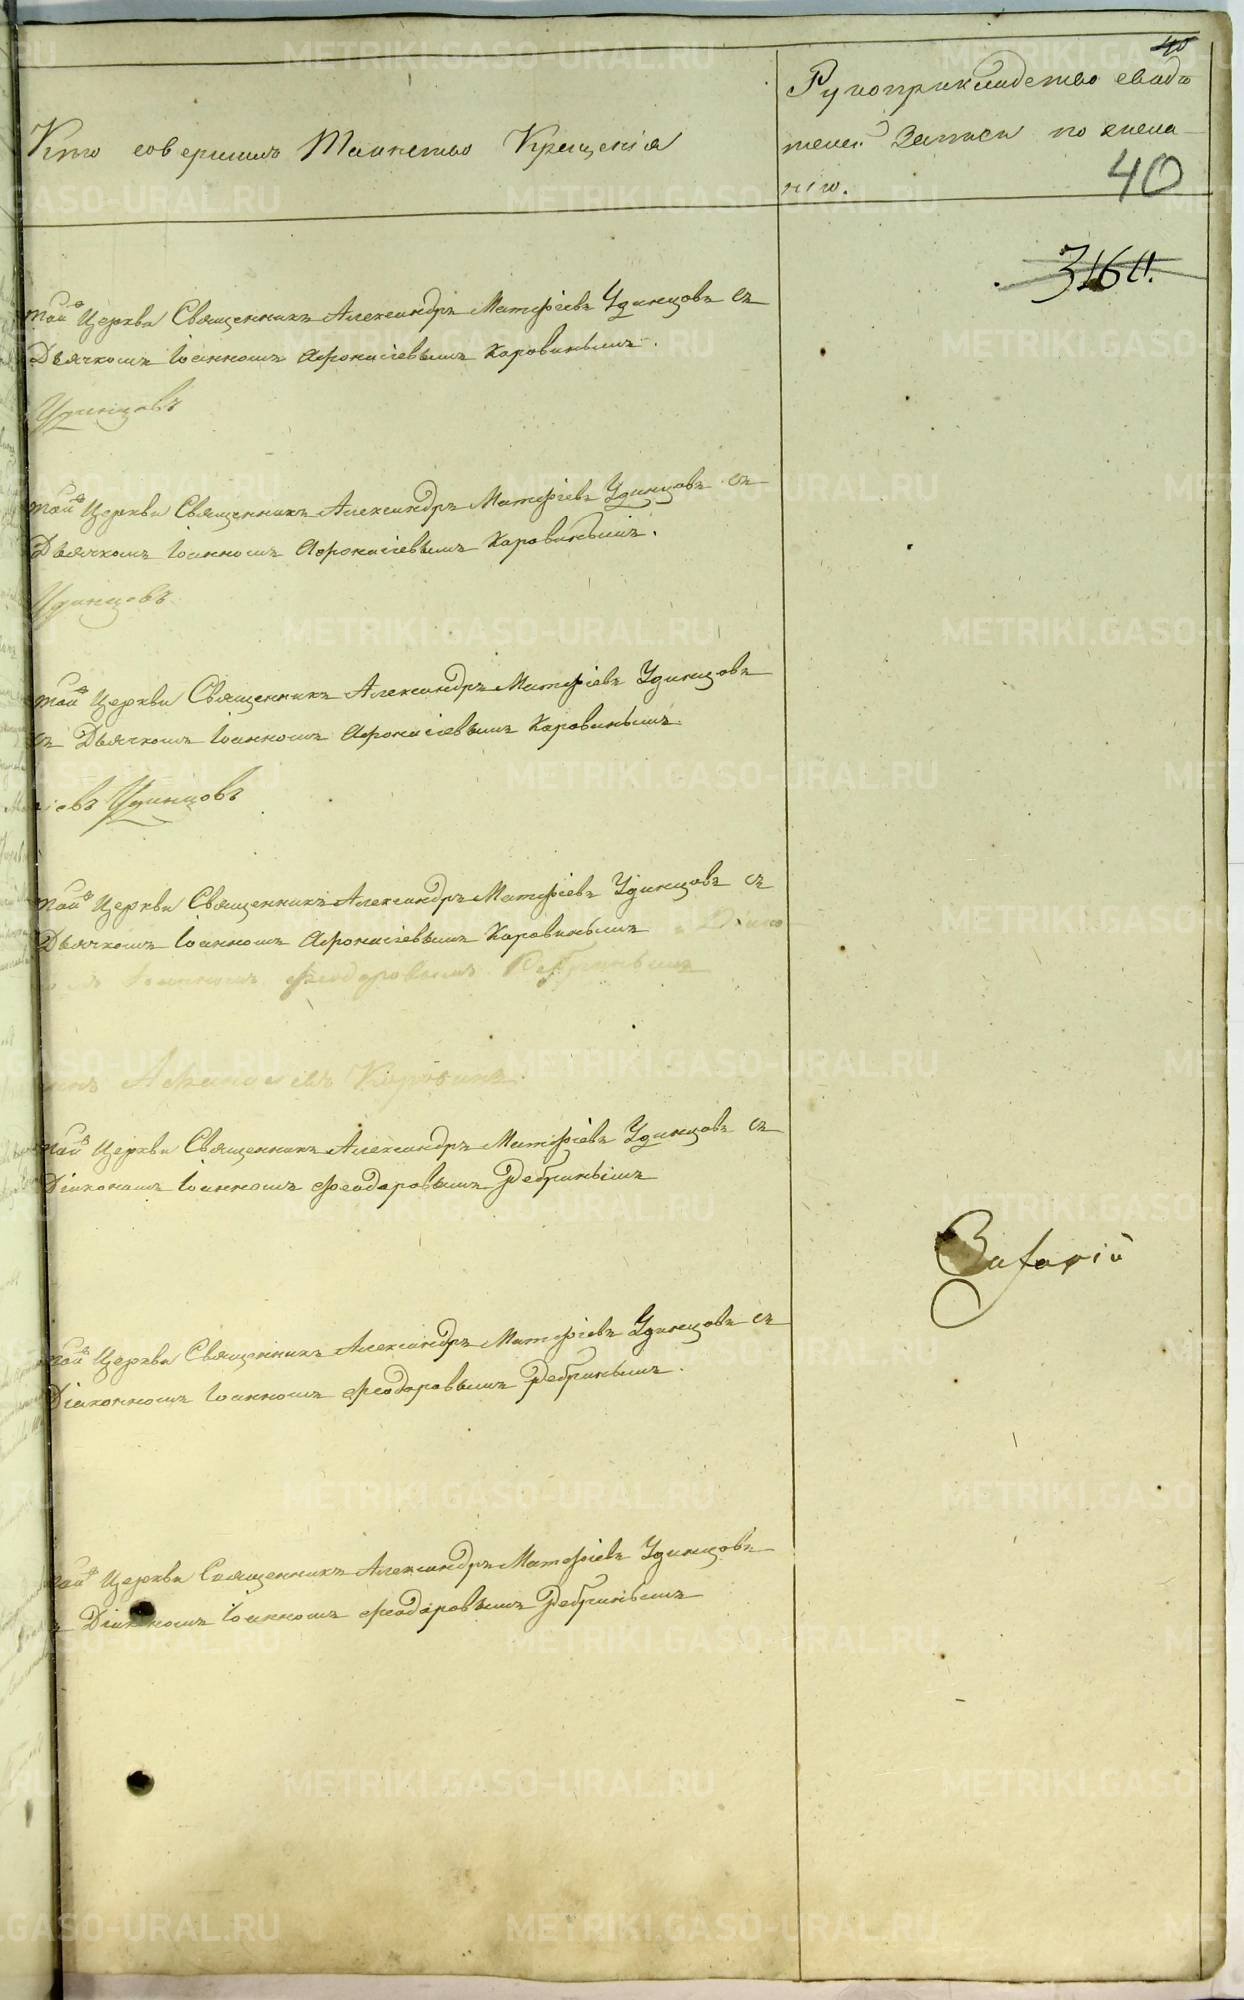 40
Кто совершилъ Таинство Крещенія
Рукоприкладство свидѣ
телей Записи по жела
нію.
40
316
той Церкви Священникъ Александръ Матфіевъ Удинцовъ съ
Дьячкомъ Іоанномъ Афонасіевымъ Коровинымъ.
Удинцовъ
той Церкви Священникъ Александръ Матфіевъ Удинцовъ съ
Дьячкомъ Іоанномъ Афонасіевымъ Коровинымъ.
Удинцовъ
той Церкви Священникъ Александръ Матфіевъ Удинцовъ
съ Дьячкомъ Іоанномъ Афонасіевымъ Коровинымъ.
іевъ Удинцовъ
той Церкви Священникъ Александръ Матфіевъ Удинцовъ съ
Дьячкомъ Іоанномъ Афонасіевымъ Коровинымъ Діако
Іоанномъ Феодоровымъ Ребринымъ
Афанасіевъ Коровинъ.
той Церкви Священникъ Александръ Матфіевъ Удинцовъ съ
Діакономъ Іоанномъ Феодоровымъ Ребринымъ
той Церкви Священникъ Александръ Матфіевъ Удинцовъ съ
Діакономъ Іоанномъ Феодоровымъ Ребринымъ.
той Церкви Священникъ Александръ Матфіевъ Удинцовъ
Діакономъ Іоанномъ Феодоровымъ Ребринымъ
METRIKI.GASO-URAL.RU